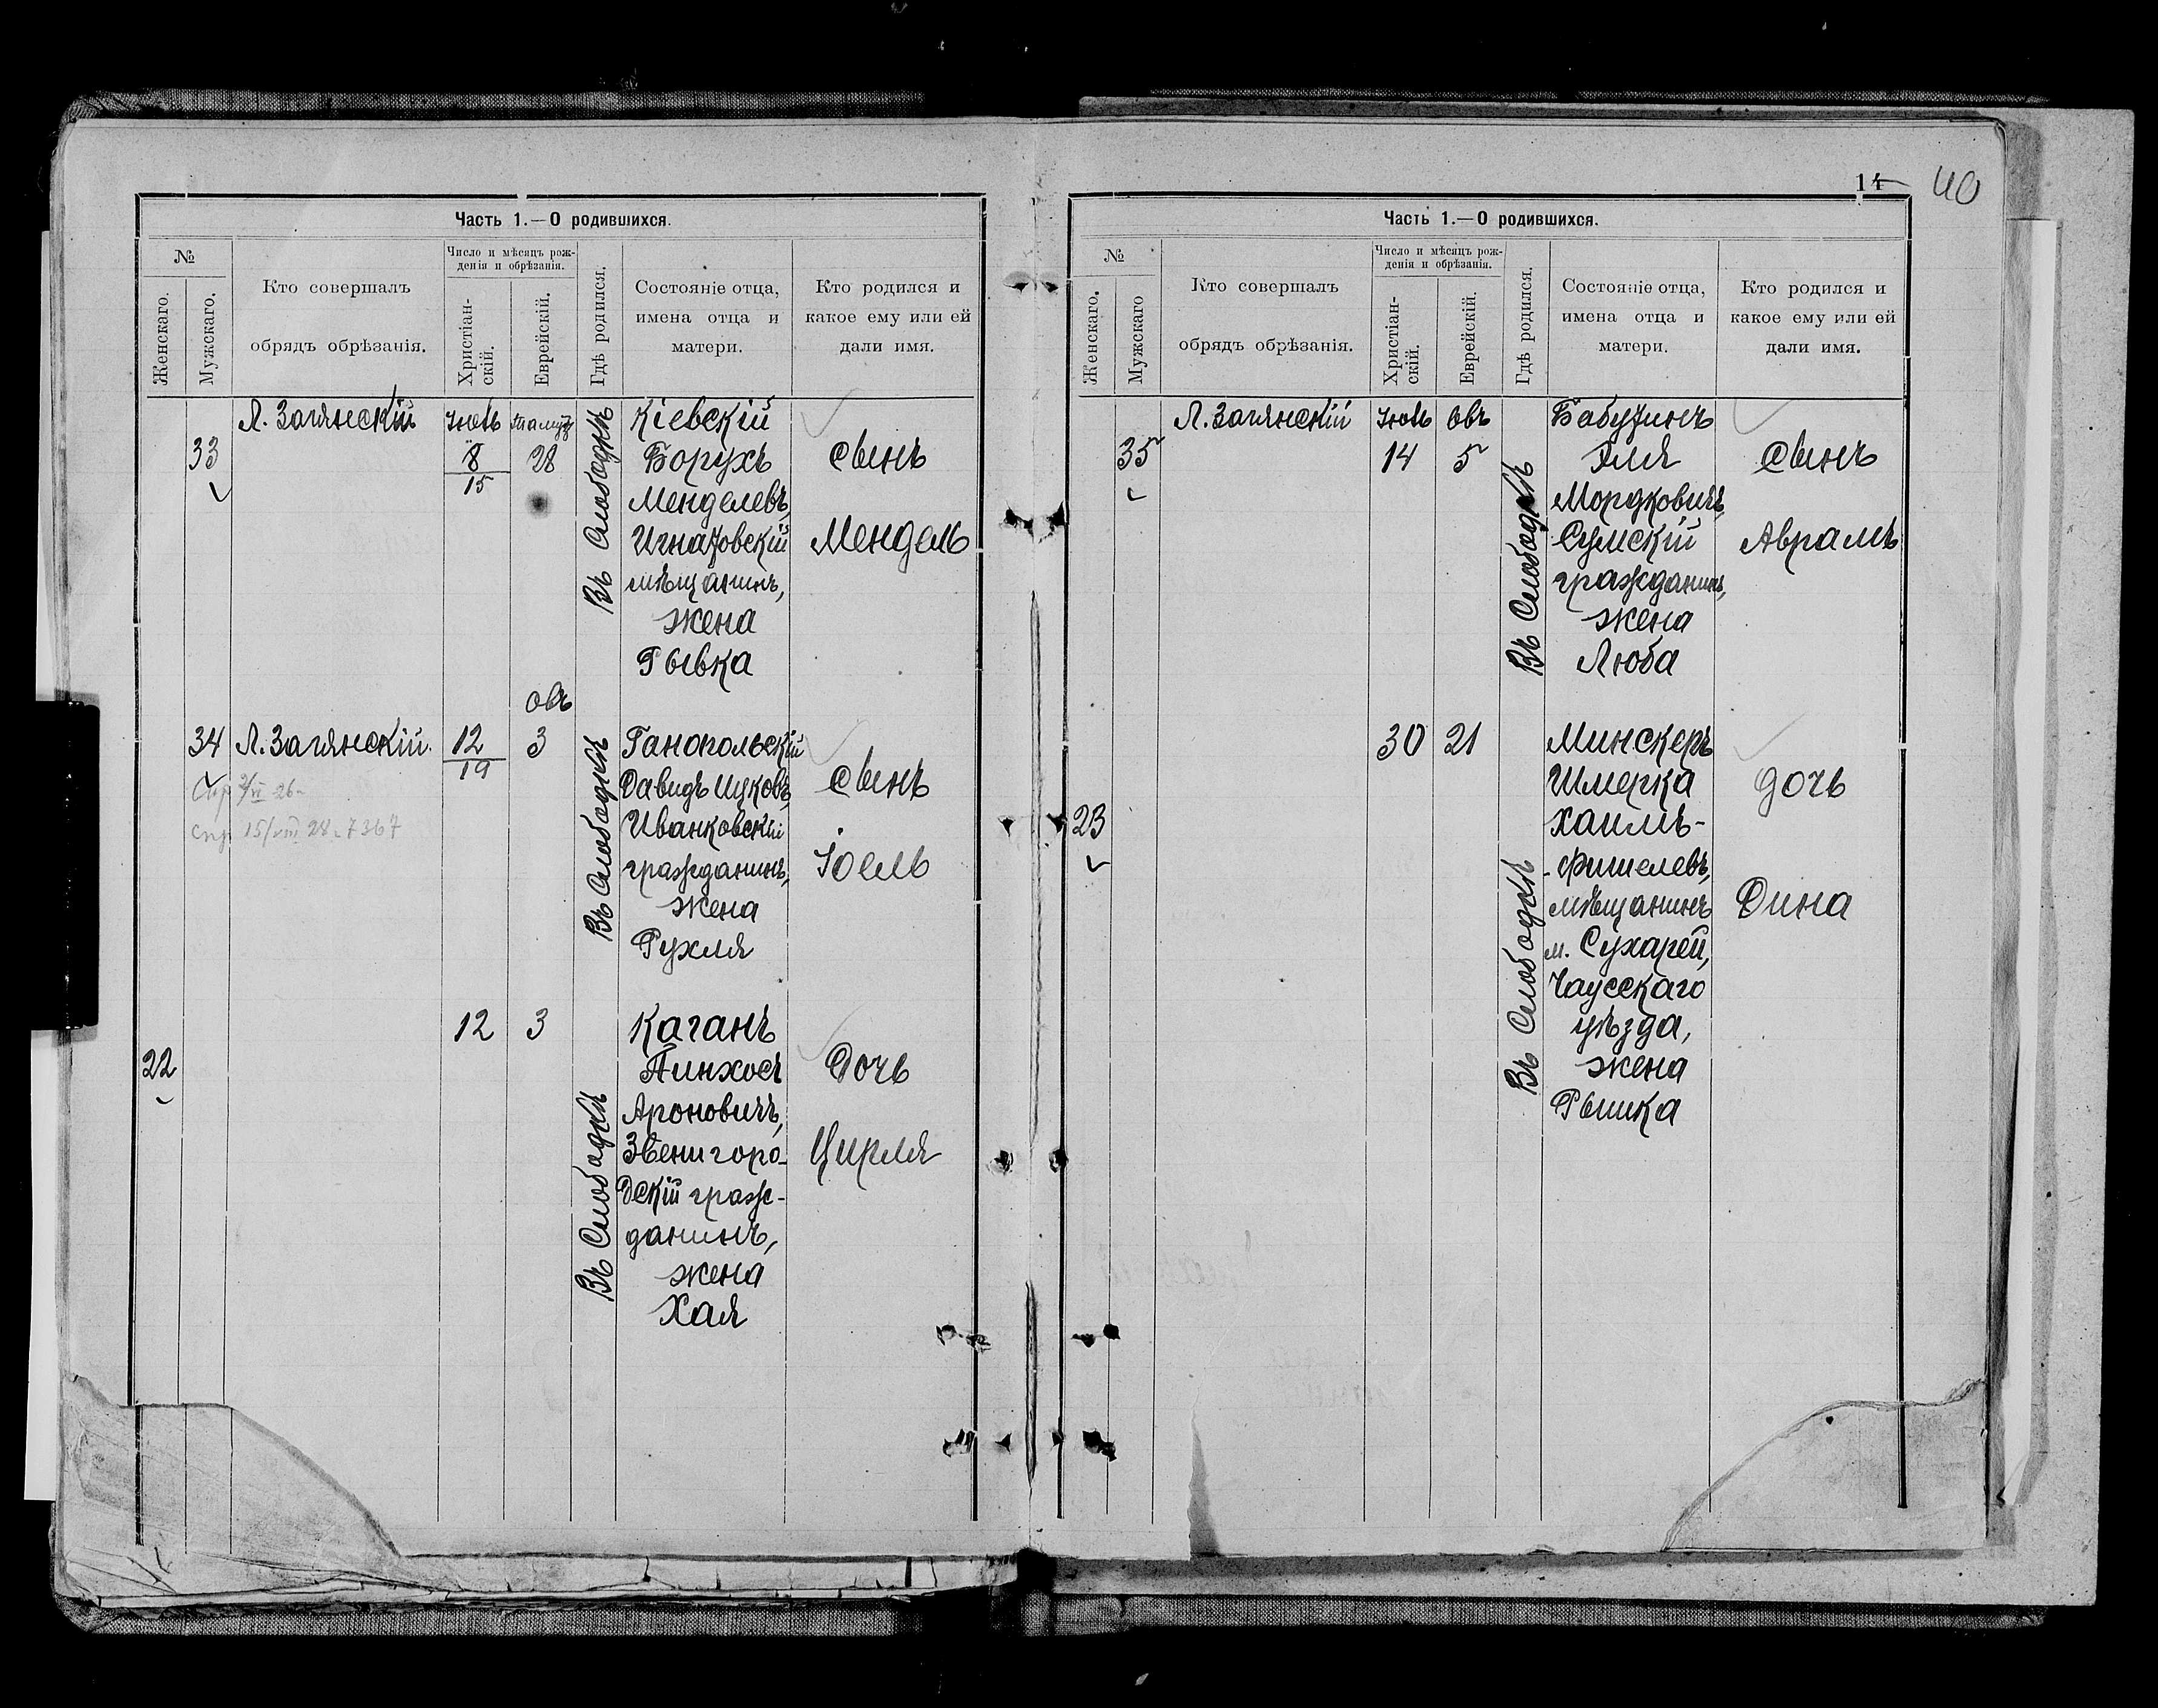 Часть 1.—О родившихся.
№
Женскаго.
Мужскаго.
Кто совершалъ
обрядъ обрѣзанія.
Число и мѣсяцъ рож-
денія и обрѣзанія.
Христіан-
скій.
Еврейскій.
Гдѣ родился.
Состояніе отца,
имена отца и
матери.
Кто родился и
какое ему или ей
дали имя.
33
Л. Загянскій
Іюль
8
15
Тамуз
28
Въ Слободкѣ
Кіевскій
Борухъ
Менделевъ,
Игнатовскій
мѣщанинъ,
жена
Рывка
сынъ
Мендель
34
Л. Загянскій.
12
19
овъ
3
Въ Слободкѣ
Ганопольскій
Давидъ Ицковъ,
Иванковскій
гражданинъ,
жена
Рухля
сынъ
Іоель
Спр 26
спр 15/VIII 28 7367
22
12
3
Въ Слободкѣ
Каганъ
Пинхосъ
Ароновичъ,
Звенигоро-
дскій граж-
данинъ,
жена
Хая
Дочь
Цирля
14
40
Часть 1.—О родившихся.
№
Женскаго.
Мужскаго
Кто совершалъ
обрядъ обрѣзанія.
Число и мѣсяцъ рож-
денія и обрѣзанія.
Христіан-
скій.
Еврейскій.
Гдѣ родился.
Состояніе отца,
имена отца и
матери.
Кто родился и
какое ему или ей
дали имя.
35
Л. Загянскій
Іюль
14
овъ
5
Въ Слободкѣ
Бабушинъ
Эля
Мордковичъ,
Сумскій
гражданинъ,
жена
Люба
Сынъ
Аврамъ
23
30
21
Въ Слободкѣ
Минскеръ
Шмерка
Хаимъ-
-Фишелевъ,
мѣщанинъ
м. Сухарей,
Чаусскаго
уѣзда,
жена
Рышка
дочь
Дина